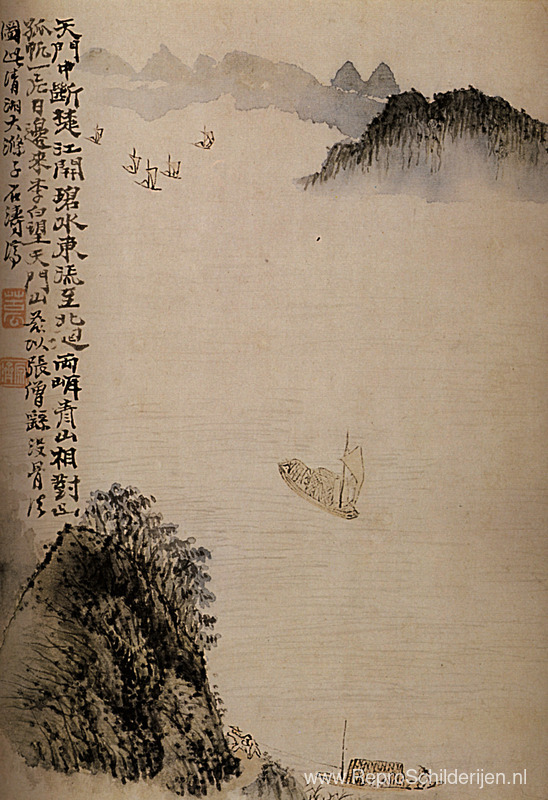 天門中斷楚江開碧水東流至北廻兩岸青山相對出
孤帆一片日邊來李白望天門山茲以張僧繇沒骨法
圖此清湘大滌子石濤濟
www.ReproSchilderijen.nl